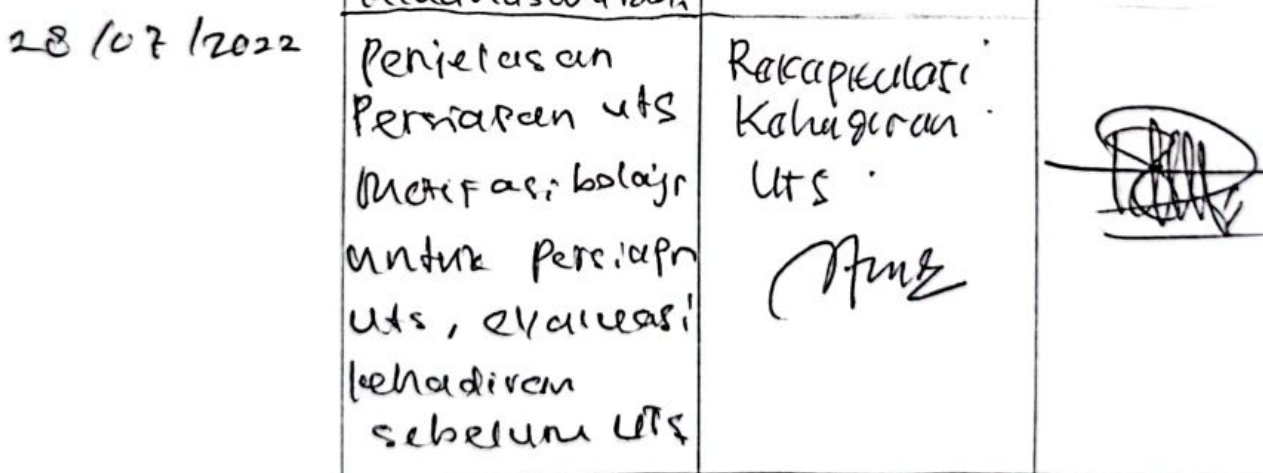 28/07/2022
Penjelasan
Persiapan uts
Motifasi bolajr
untuk persiapn
uts, evaluasi
kehadiran
sebelum UTS
Rekapitulasi
Kehadiran
UTS